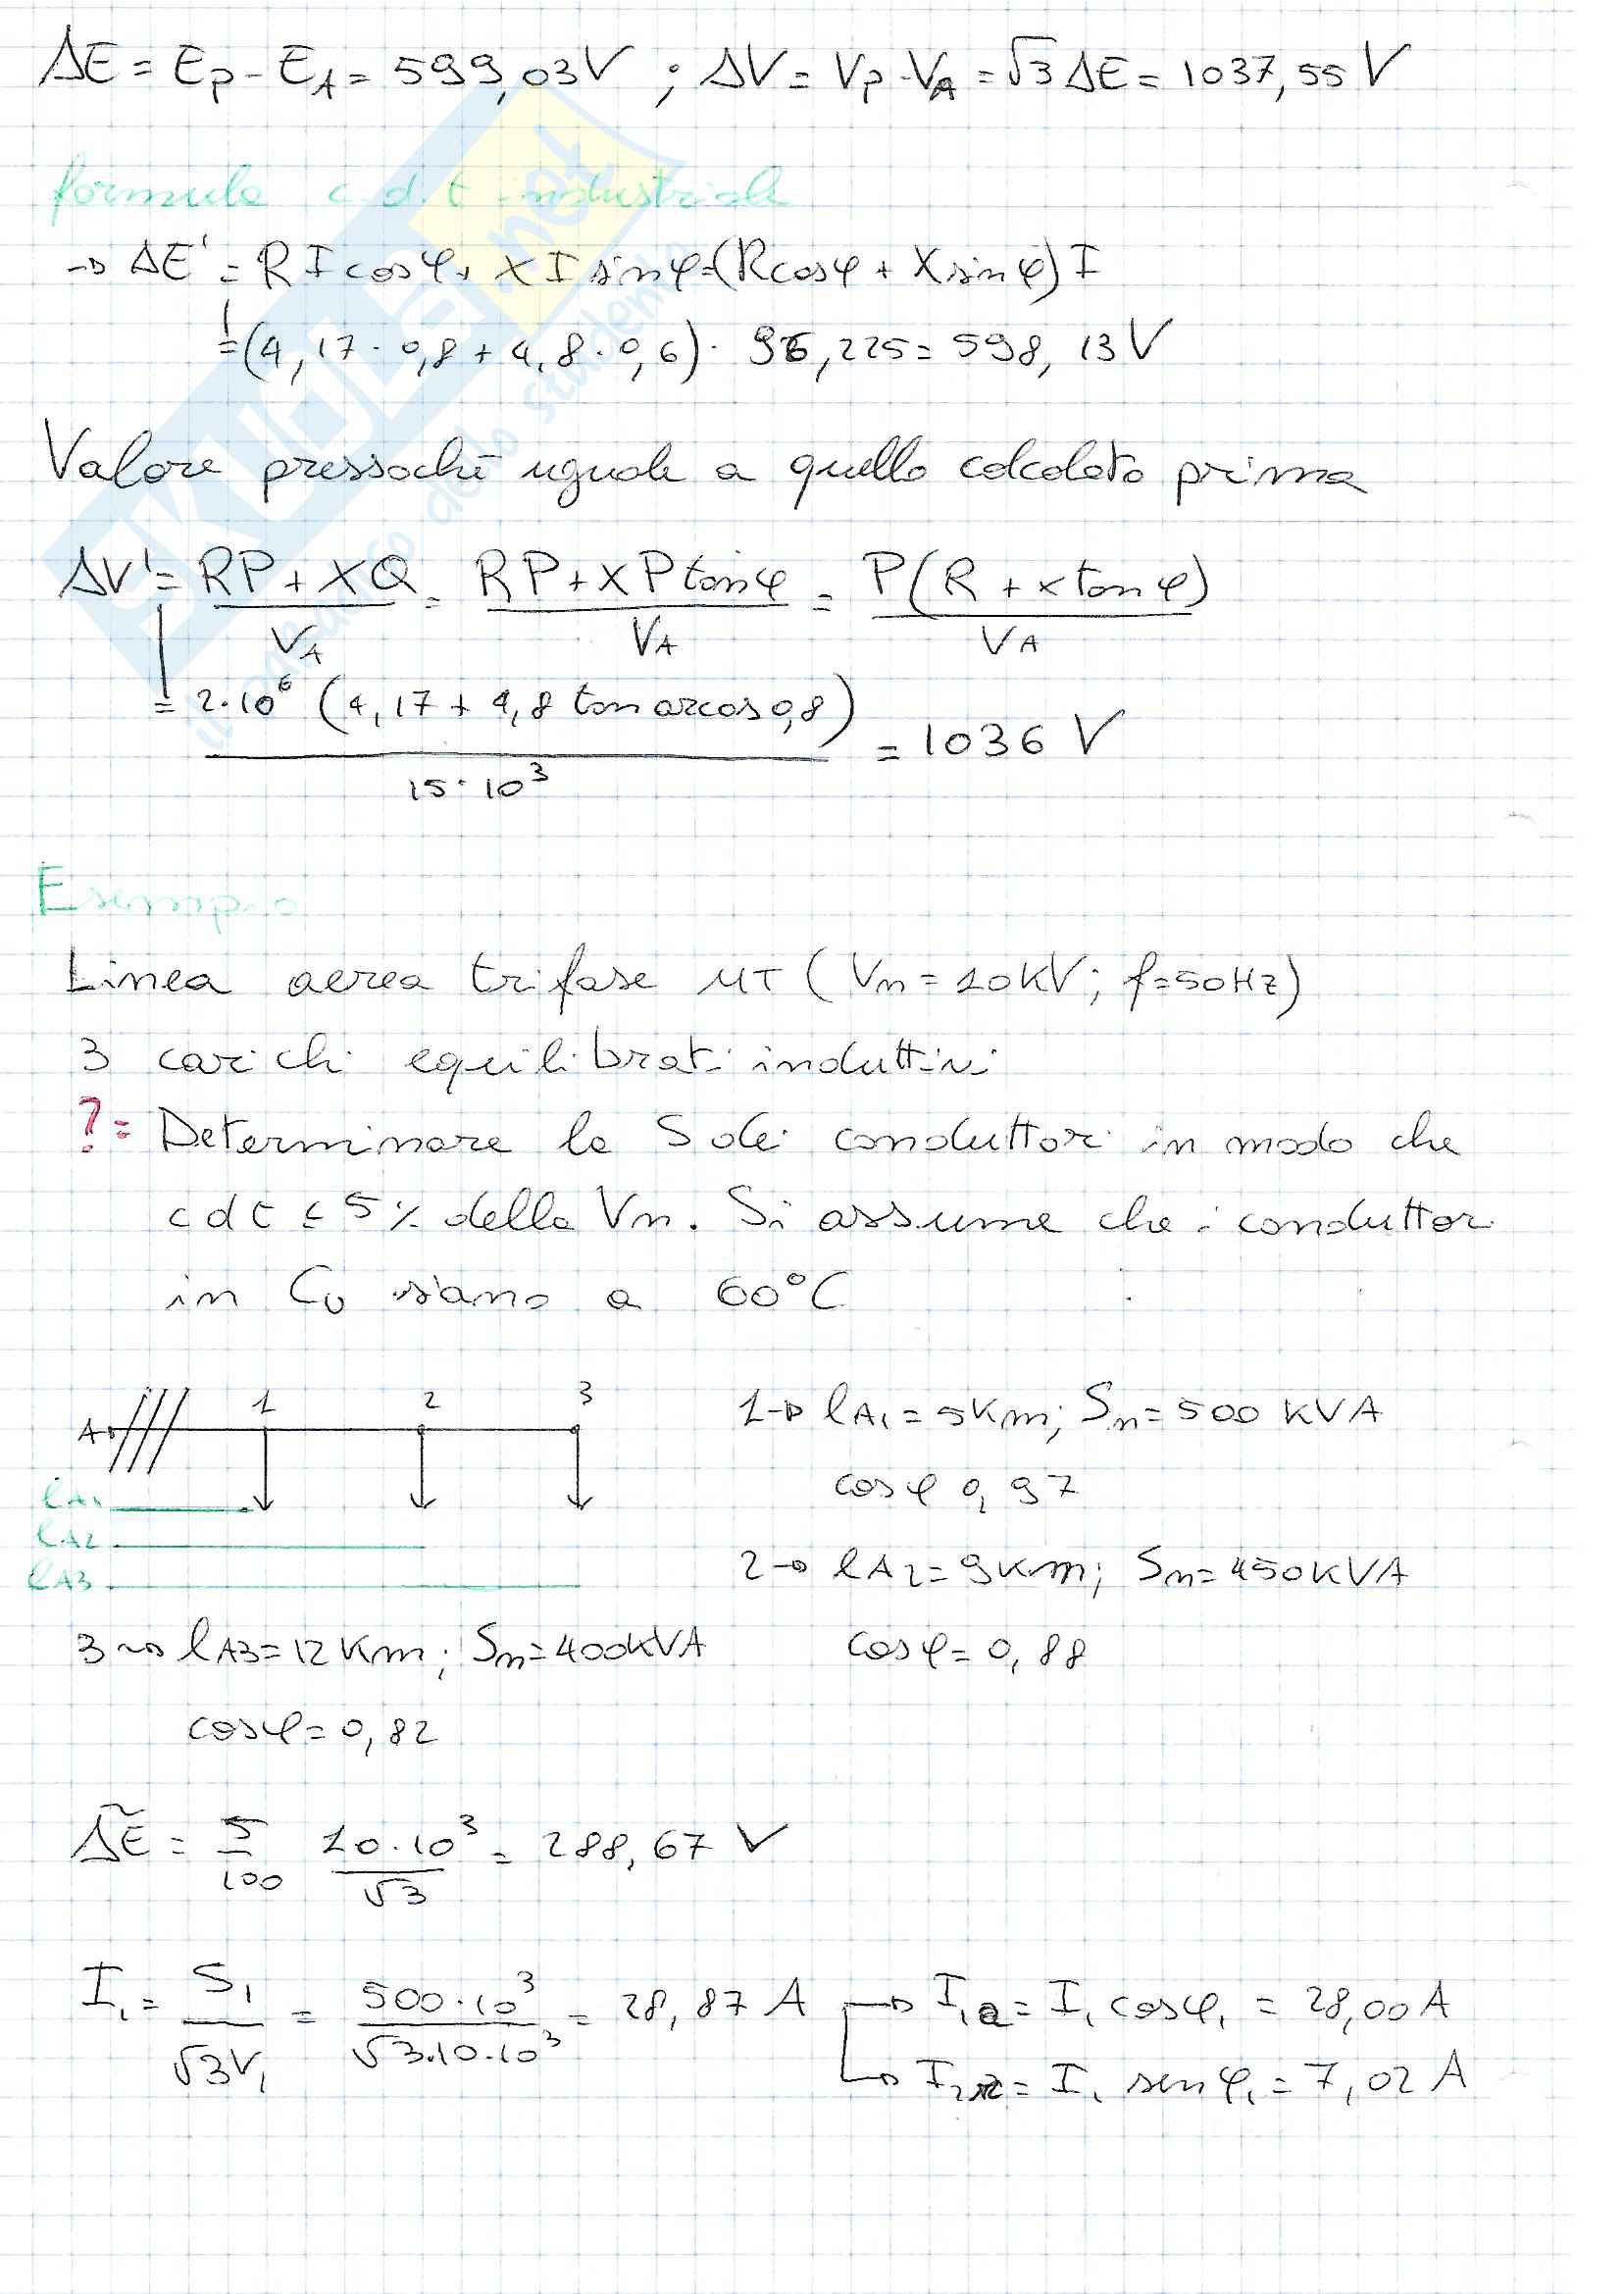 ΔE = Ep - EA = 599,03V ; ΔV = Vp - VA = √3 ΔE = 1037,55 V
formula c.d.t industriale
→ ΔE' = R I cosφ + X I sinφ = (Rcosφ + Xsinφ) I
= (4,17 · 0,8 + 4,8 · 0,6) · 96,225 = 598,13 V
Valore pressochè uguale a quello calcolato prima
ΔV' = RP + XQ / VA = RP + XP tanφ / VA = P(R + x tanφ) / VA
= 2·10⁶ (4,17 + 4,8 tan arcos 0,8) / 15·10³ = 1036 V
Esempio
Linea aerea trifase MT (Vn = 10kV; f=50Hz)
3 carichi equilibrati induttivi
? = Determinare la S dei conduttori in modo che
cdt ≤ 5% della Vn. Si assume che i conduttori
in Cu siano a 60°C
A 1 2 3
lA1
lA2
lA3
1→ lA1 = 5Km; Sn = 500 KVA
cosφ 0,97
2→ lA2 = 9Km; Sn = 450KVA
cosφ = 0,88
3→ lA3 = 12Km; Sn = 400KVA
cosφ = 0,82
ΔẼ = 5/100 10·10³/√3 = 288,67 V
I1 = S1/√3V1 = 500·10³/√3·10·10³ = 28,87 A → I1a = I1 cosφ1 = 28,00A
→ I1r = I1 senφ1 = 7,02 A
SKUOLA.net